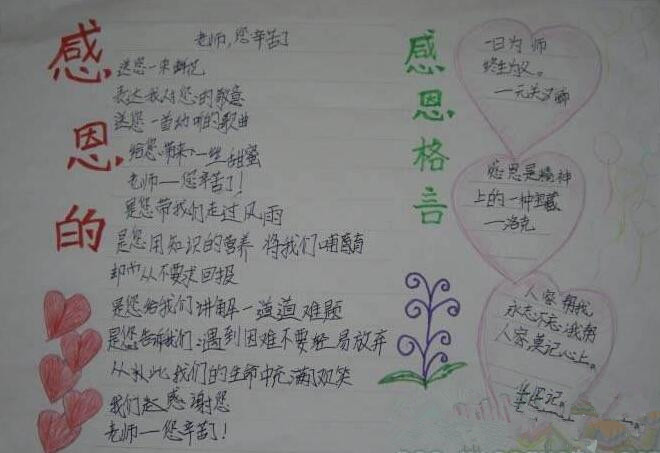 感恩的
老师,您辛苦了
送您一束鲜花
表达我对您的歉意
送您一首动听的歌曲
给您带来一些甜蜜
老师——您辛苦了!
是您带我们走过风雨
是您用知识的营养 将我们哺育
却从不要求回报
是您给我们讲解一道道难题
是您告诉我们:遇到困难不要轻易放弃
从此我们的生命中充满欢笑
我们感谢您
老师——您辛苦了!
感恩格言
一日为师
终生为父。
——元关汉卿
感恩是精神
上的一种宝藏
——洛克
人家帮我
永志不忘;我帮
人家莫记心上。